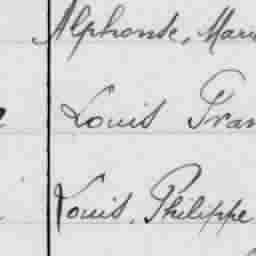 Alphonse, Mari
Louis Fran
Louis, Philippe